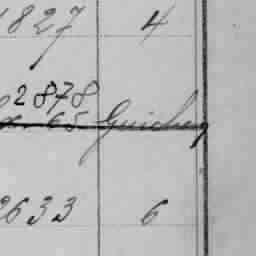 1827 4
2878
65 Guichey
2633 6